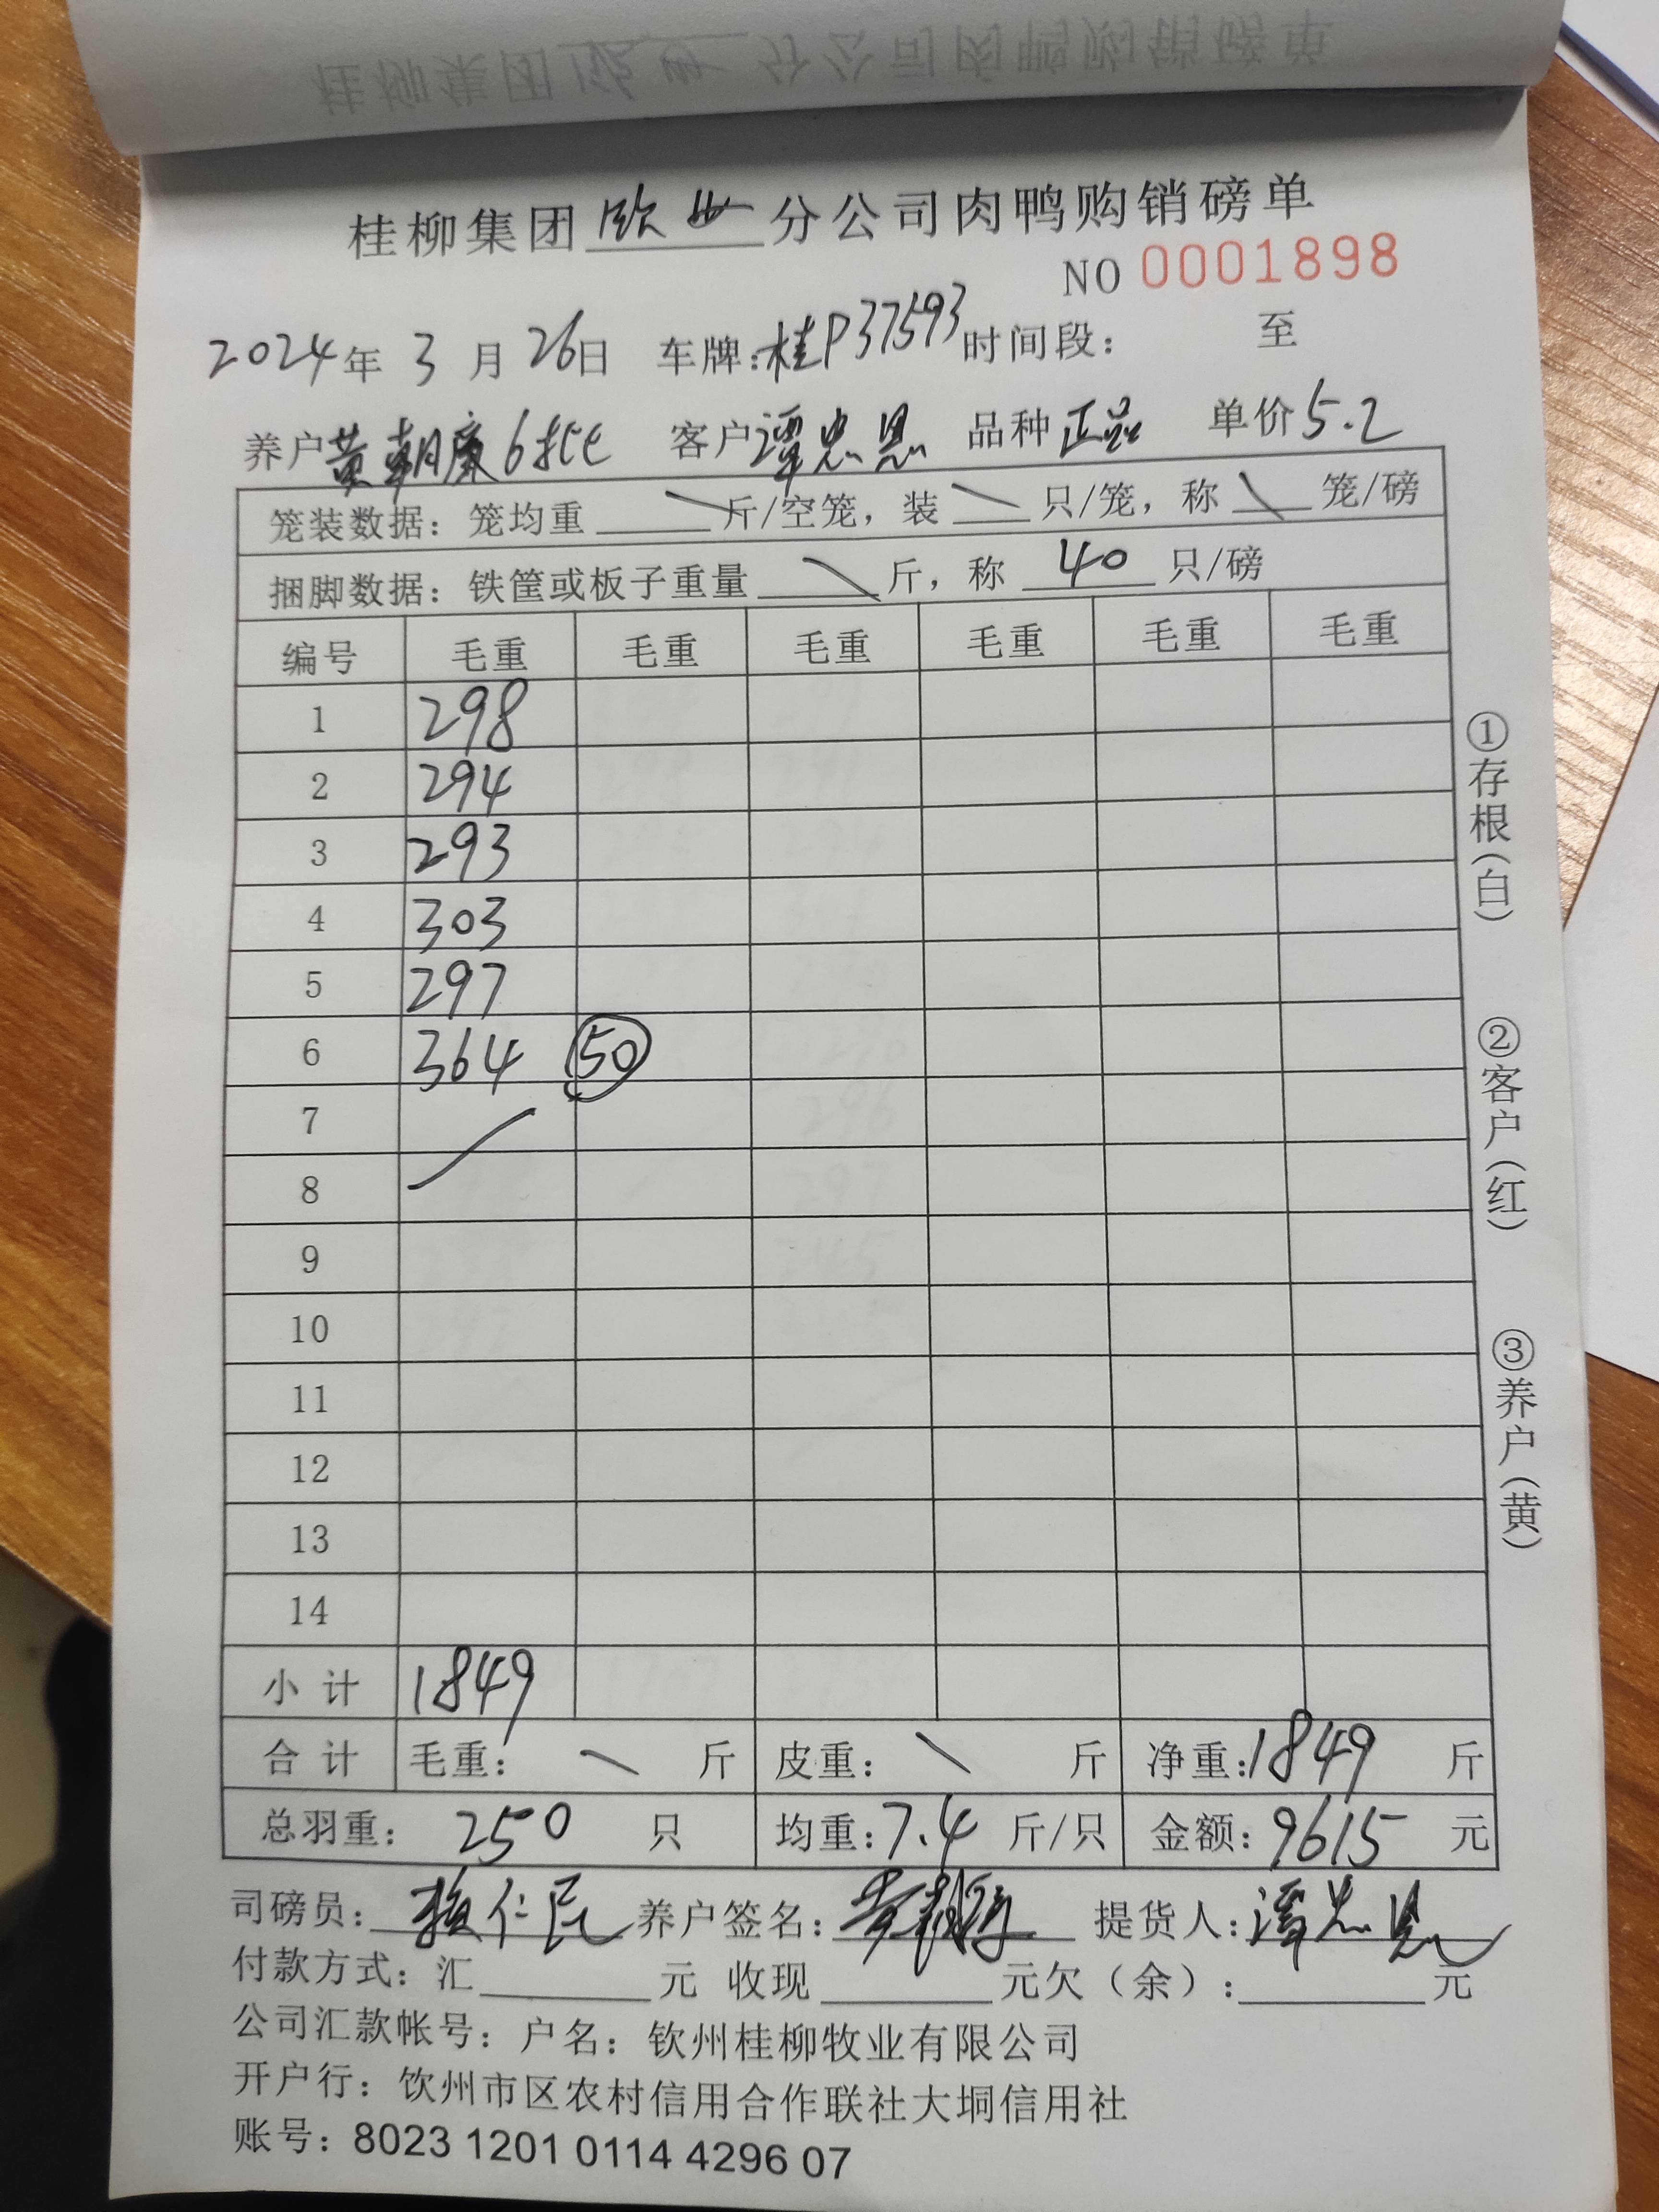 桂柳集团钦州分公司肉鸭购销磅单
NO 0001898
2024年 3 月 26日 车牌:桂P37593 时间段: 至
养户黄朝康6批 客户谭忠恩 品种正品 单价5.2
笼装数据: 笼均重 \ 斤/空笼, 装 \ 只/笼, 称 \ 笼/磅
捆脚数据: 铁筐或板子重量 \ 斤, 称 40 只/磅
编号 毛重 毛重 毛重 毛重 毛重 毛重
1 298
2 294
3 293
4 303
5 297
6 364 50
7
8
9
10
11
12
13
14
小计 1849
合计 毛重: \ 斤 皮重: \ 斤 净重:1849 斤
总羽重: 250 只 均重:7.4 斤/只 金额:9615 元
司磅员: 仁民 养户签名: 提货人:谭忠恩
付款方式: 汇 元 收现 元欠(余): 元
公司汇款帐号: 户名: 钦州桂柳牧业有限公司
开户行: 钦州市区农村信用合作联社大垌信用社
账号: 8023 1201 0114 4296 07
①存根(白)
②客户(红)
③养户(黄)